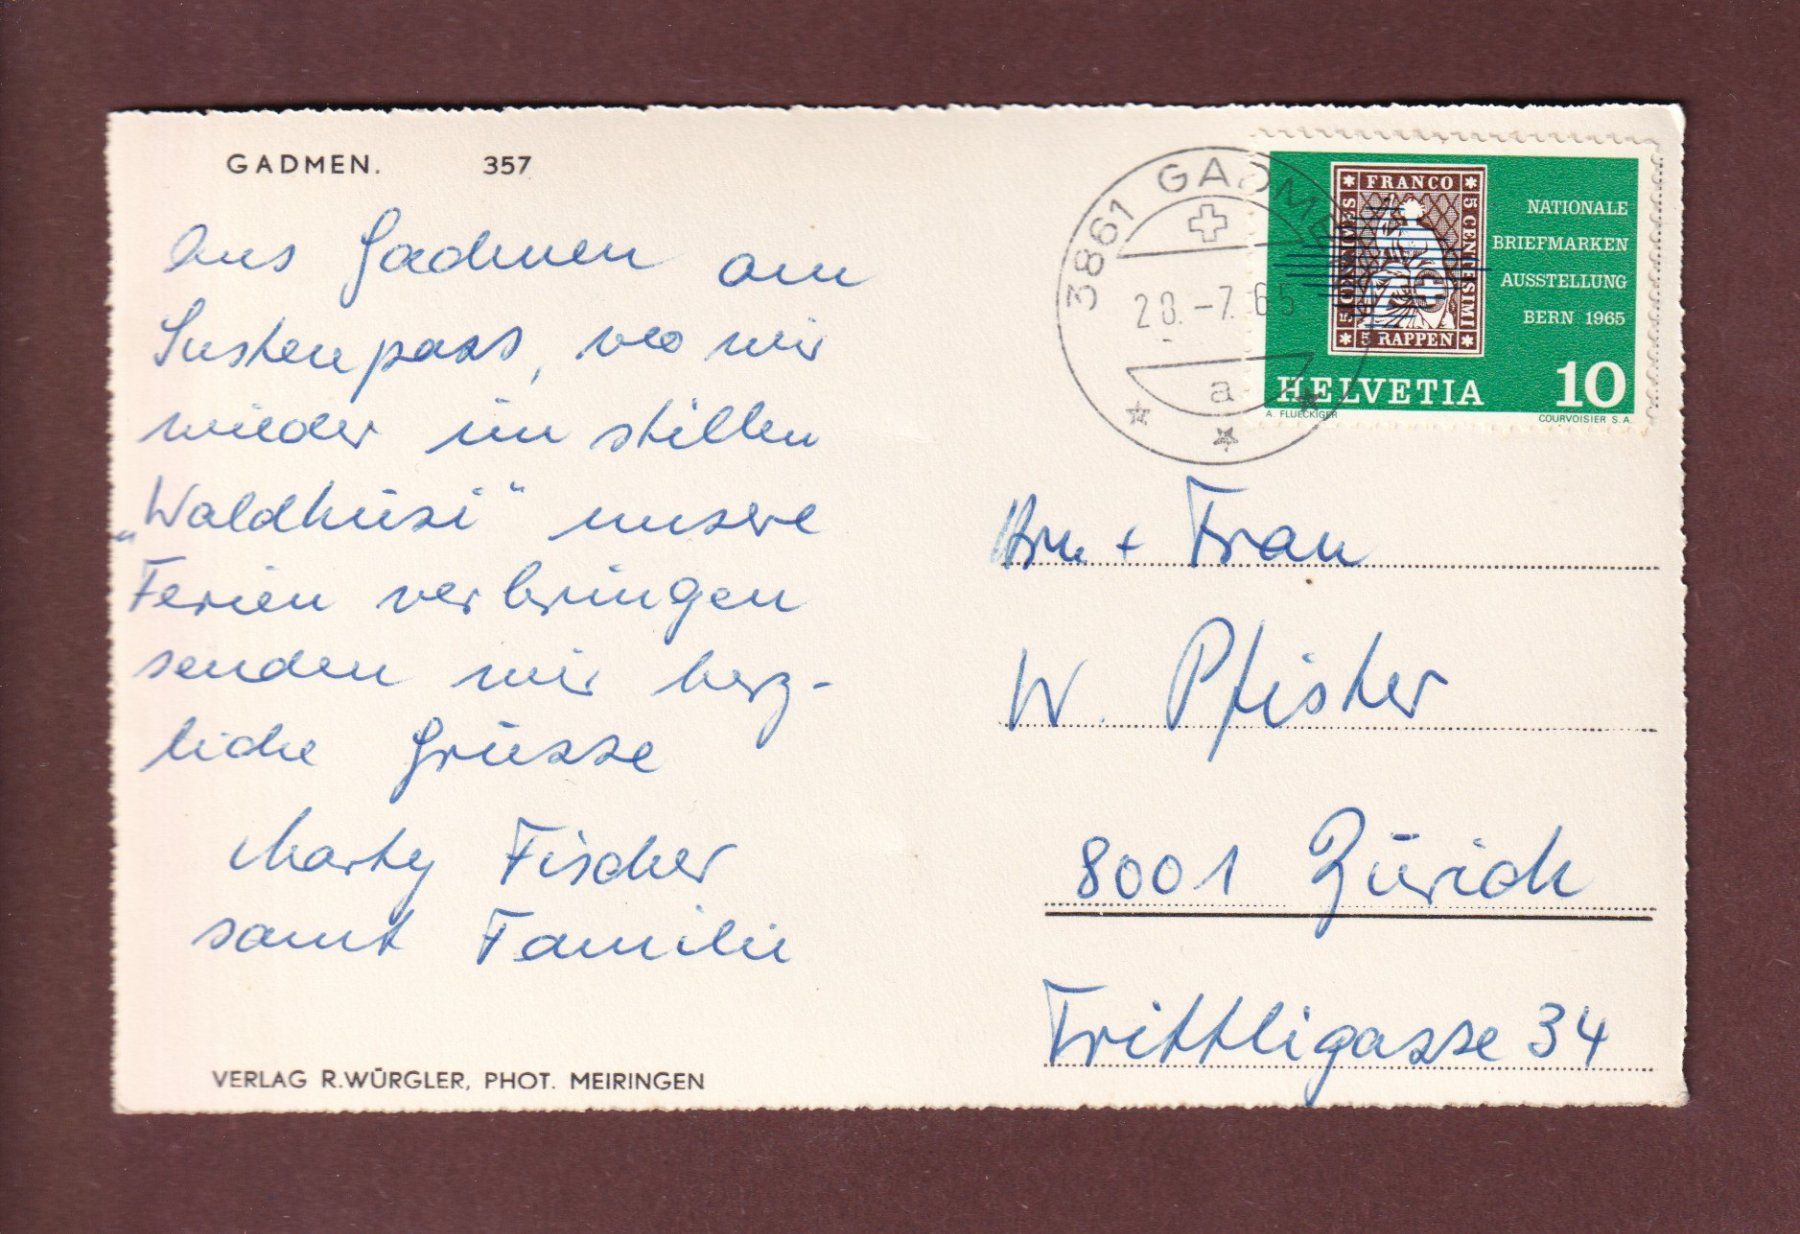 GADMEN. 357
Aus Gadmen am
Sustenpass, wo wir
wieder im stillen
„Waldhüsi“ unsere
Ferien verbringen
senden wir herz-
liche Grüsse
Marty Fischer
samt Familie
VERLAG R.WÜRGLER, PHOT. MEIRINGEN
3861 GADMEN
28.-7.65
a
FRANCO
5 CENTIMES
5 CENTESIMI
5 RAPPEN
NATIONALE
BRIEFMARKEN
AUSSTELLUNG
BERN 1965
HELVETIA 10
A. FLUECKIGER
COURVOISIER S.A.
Hrn + Frau
W. Pfister
8001 Zürich
Trittligasse 34